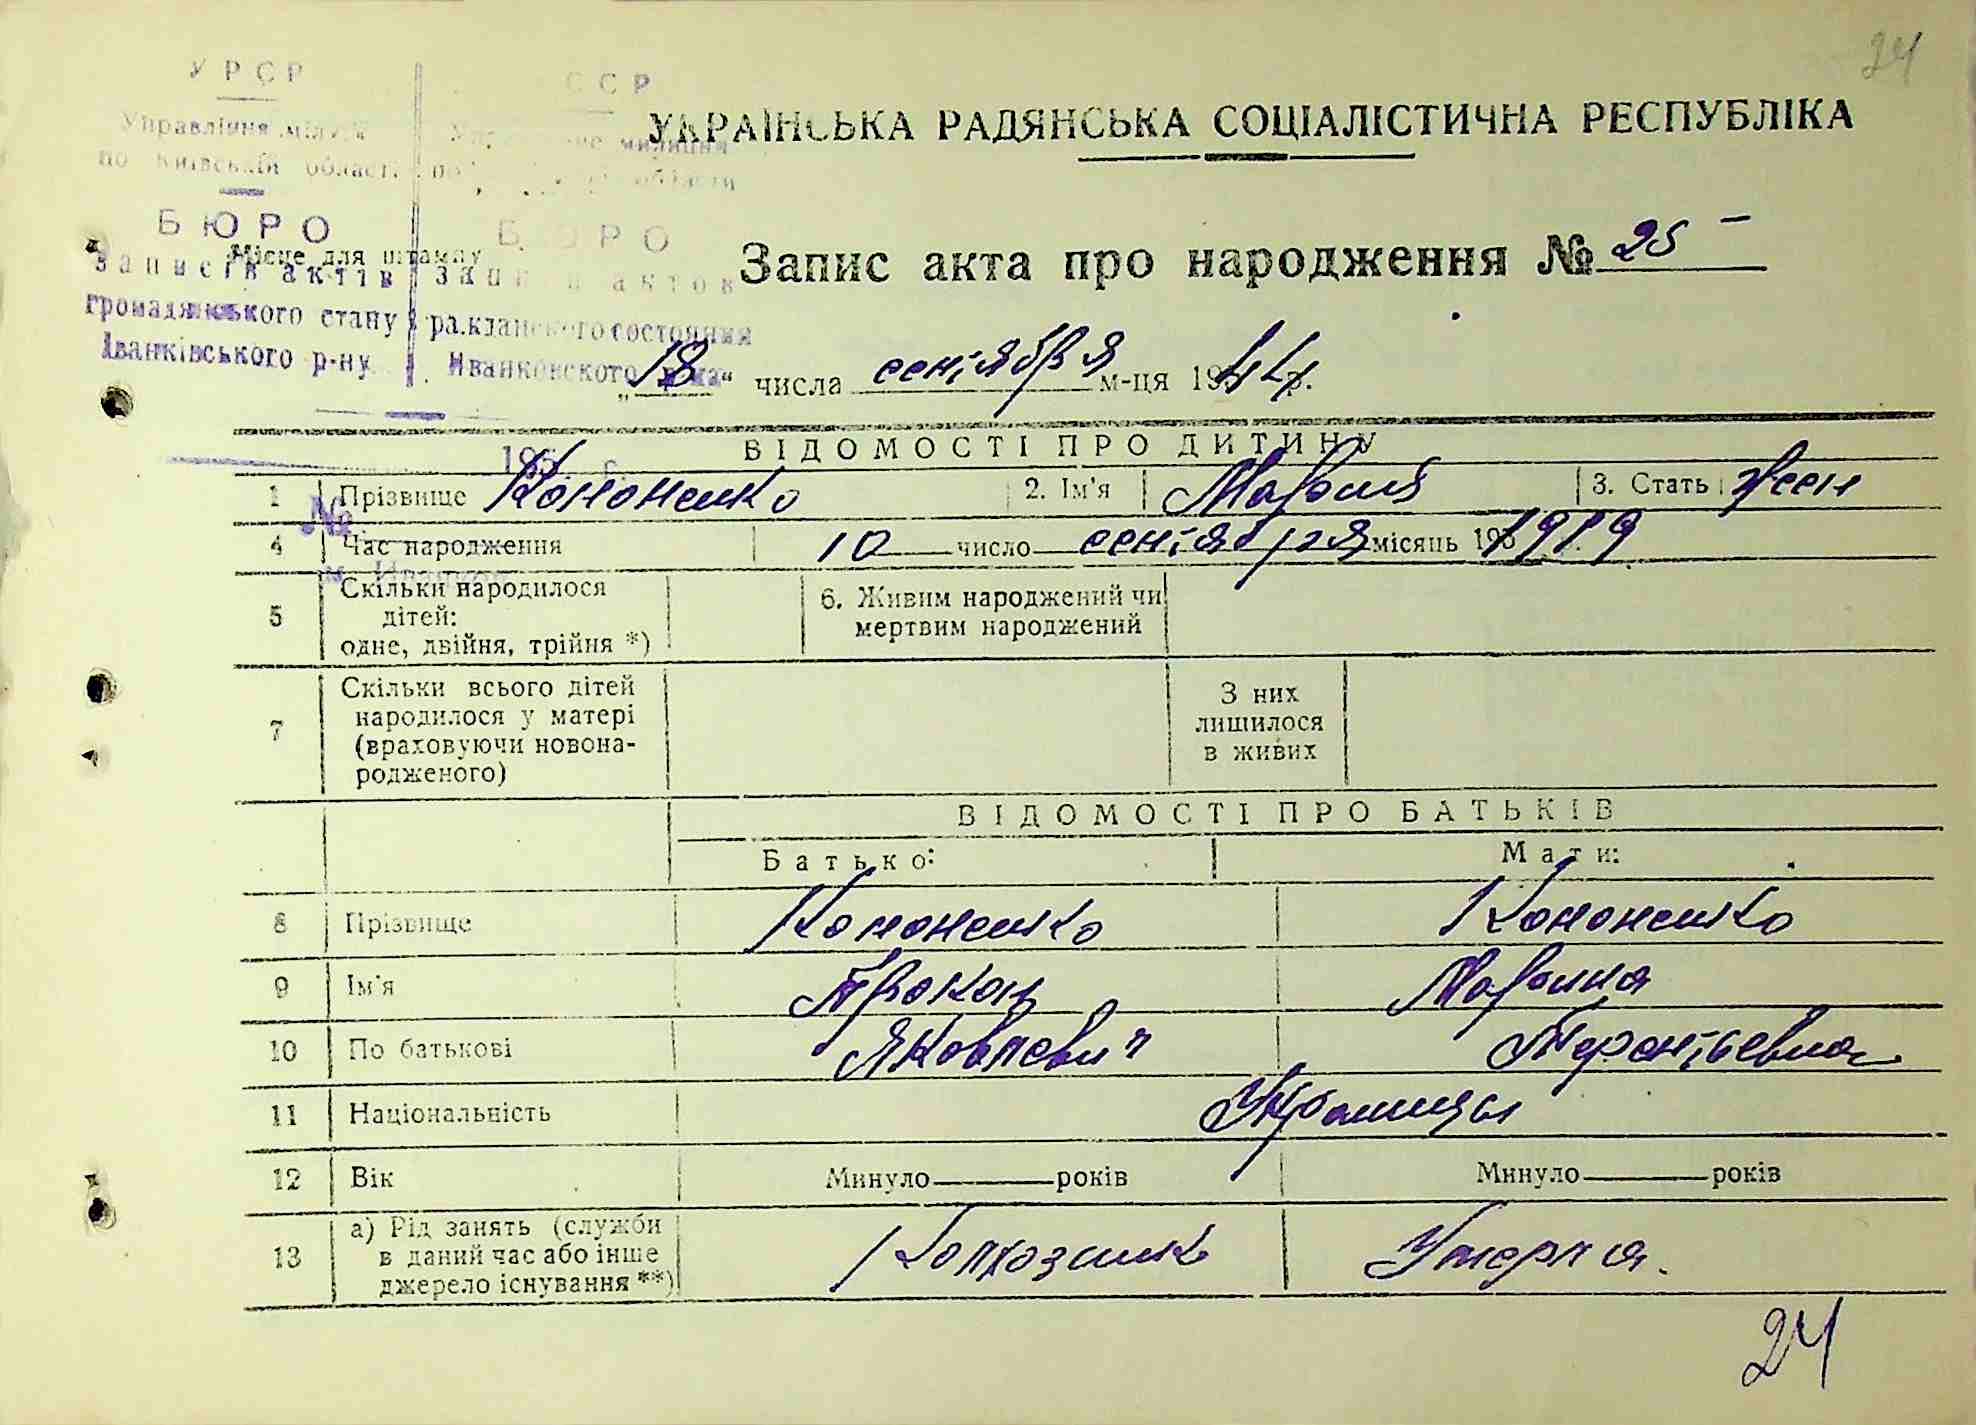 24
УРСР
ССР
УКРАЇНСЬКА РАДЯНСЬКА СОЦІАЛІСТИЧНА РЕСПУБЛІКА
Управління міліції
милиции
по Київській област.
области
БЮРО
БЮРО
Місце для штампу
Запис акта про народження № 25 -
записів актів
актов
громадянського стану
гражданского состояния
Іванківського р-ну
Иванковского р-на
„18“ числа сентября м-ця 1944 р.
195 г.
ВІДОМОСТІ ПРО ДИТИНУ
1 Прізвище Кононенко 2. Ім'я Мария 3. Стать жен
№
4 Час народження 10 число сентября місяць 195 1919
м. Иванков
5 Скільки народилося дітей: одне, двійня, трійня *)
6. Живим народжений чи мертвим народжений
7 Скільки всього дітей народилося у матері (враховуючи новонародженого)
З них лишилося в живих
ВІДОМОСТІ ПРО БАТЬКІВ
Батько: Мати:
8 Прізвище Кононенко Кононенко
9 Ім'я Прокоп Марина
10 По батькові Яковлевич Терентьевна
11 Національність Украинцы
12 Вік Минуло років Минуло років
13 а) Рід занять (служби в даний час або інше джерело існування **) Колхозник Умерла.
24